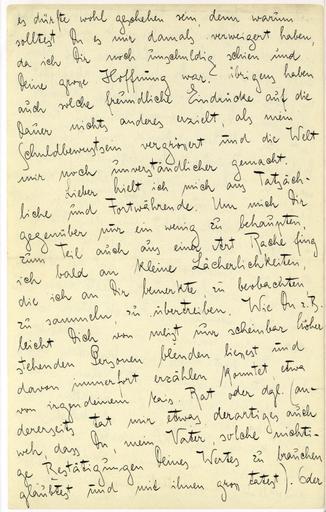 es dürfte wohl geschehen sein, denn warum
solltest Du es mir damals verweigert haben,
da ich Dir noch unschuldig schien und
Deine grosse Hoffnung war. Übrigens haben
auch solche freundliche Eindrücke auf die
Dauer nichts anderes erzielt, als mein
Schuldbewusstsein vergrössert und die Welt
mir noch unverständlicher gemacht.
Lieber hielt ich mich ans Tatsäch-
liche und Fortwährende. Um mich Dir
gegenüber nur ein wenig zu behaupten,
zum Teil auch aus einer Art Rache fing
ich bald an kleine Lächerlichkeiten,
die ich an Dir bemerkte zu beobachten
zu sammeln, zu übertreiben. Wie Du z.B.
leicht Dich von meist nur scheinbar höher
stehenden Personen blenden liessest und
davon immerfort erzählen konntest etwa
von irgendeinem kais. Rat oder dgl. (an-
dererseits tat mir etwas derartiges auch
weh, dass Du, mein Vater, solche nichti-
ge Bestätigungen Deines Wertes zu brauchen
glaubtest und mit ihnen gross tatest). Oder